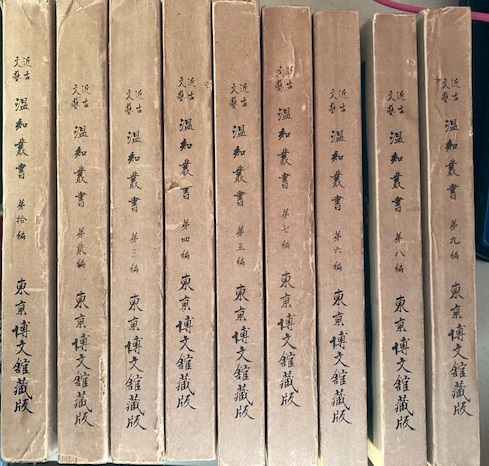 近古文藝 温知叢書 第拾編 東京博文館藏版
近古文藝 温知叢書 第貳編 東京博文館藏版
近古文藝 温知叢書 第三編 東京博文館藏版
近古文藝 温知叢書 第四編 東京博文館藏版
近古文藝 温知叢書 第五編 東京博文館藏版
近古文藝 温知叢書 第七編 東京博文館藏版
近古文藝 温知叢書 第六編 東京博文館藏版
近古文藝 温知叢書 第八編 東京博文館藏版
近古文藝 温知叢書 第九編 東京博文館藏版